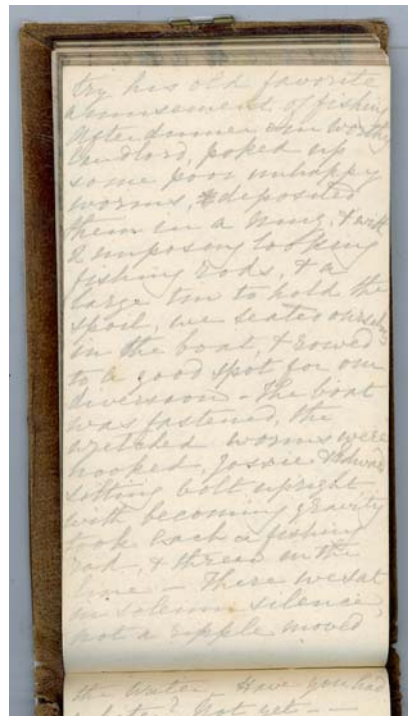 try his old favorite
amusement of fishing
After dinner our worthy
landlord, poked up
some poor unhappy
worms, & deposited
them in a mug, & with
2 imposing looking
fishing rods, & a
large tin to hold the
spoil, we seated ourselves
in the boat, & rowed
to a good spot for our
diversion - The boat
was fastened, the
wretched worms were
hooked, Jossie & Edward
sitting bolt upright
with becoming gravity
took each a fishing
rod, & threw in the
line - There we sat
in solemn silence,
not a ripple moved
the water. Have you had
a bite? Not yet - -